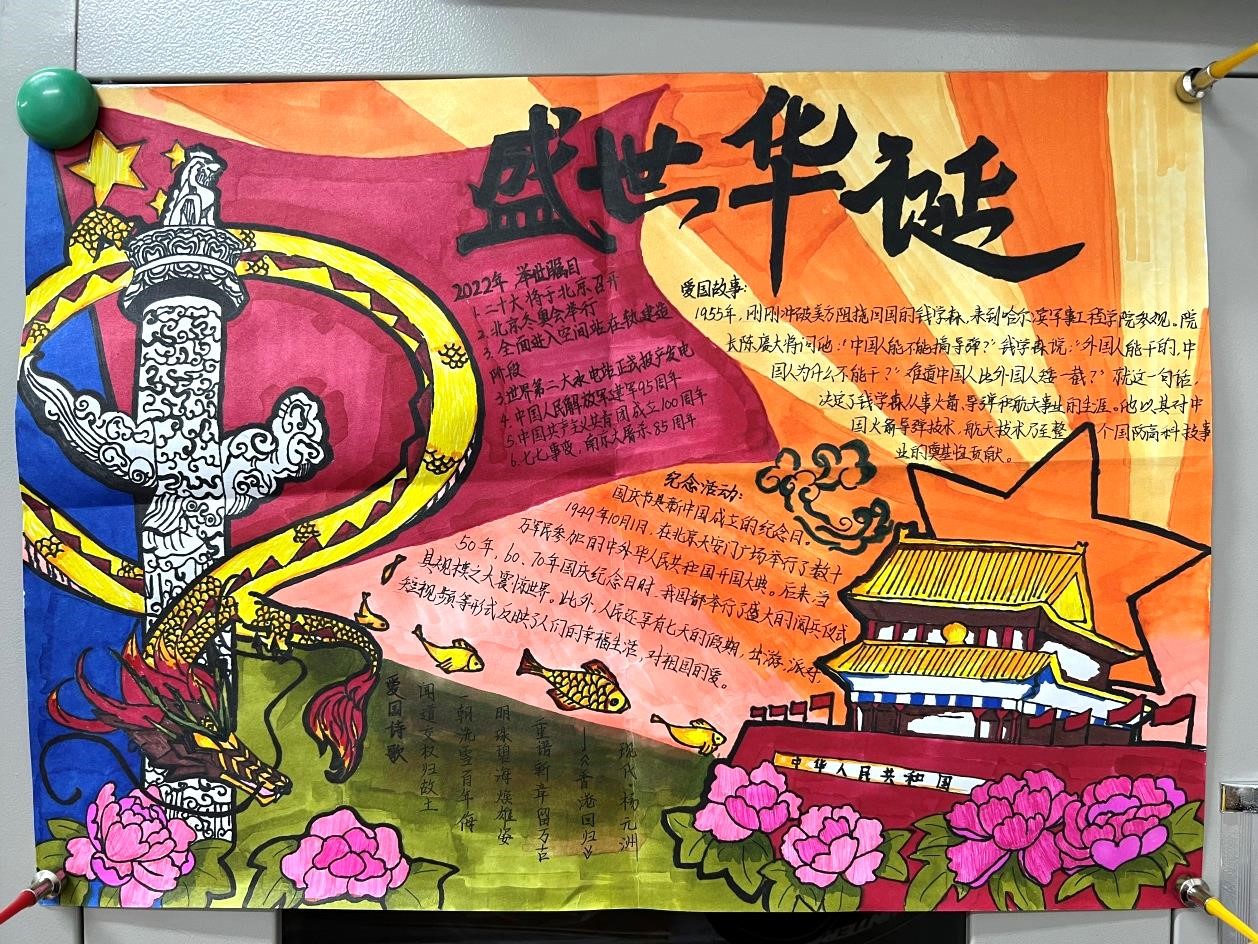 盛世华诞
2022年 举世瞩目
1.二十大将于北京召开
2.北京冬奥会举行
3.全面进入空间站在轨建造
阶段
3.世界第二大水电站正式投产发电
4.中国人民解放军建军95周年
5.中国共产主义共青团成立100周年
6.七七事变,南京大屠杀85周年
爱国故事:
1955年,刚刚冲破美方阻挠回国的钱学森,来到哈尔滨军事工程学院参观。院
长陈赓大将问他:“中国人能不能搞导弹?”钱学森说:“外国人能干的,中
国人为什么不能干?难道中国人比外国人矮一截?”就这一句话,
决定了钱学森从事火箭、导弹和航天事业的生涯。他以其对中
国火箭导弹技术,航天技术乃至整个国防高科技事
业的奠基性贡献。
纪念活动:
国庆节是新中国成立的纪念日。
1949年10月1日,在北京天安门广场举行了数十
万军民参加的中华人民共和国开国大典。后来,当
50年、60、70年国庆纪念日时,我国都举行了盛大的阅兵仪式
其规模之大震惊世界。此外,人民还享有七天的假期,出游,派寿,
短视频等形式反映了人们的幸福生活,对祖国的爱。
爱国诗歌
闻道交权归故土
一朝洗雪百年侮
明珠璀海焕雄姿
重谱新章留万古
——《香港回归》
现代·杨元洲
中华人民共和国